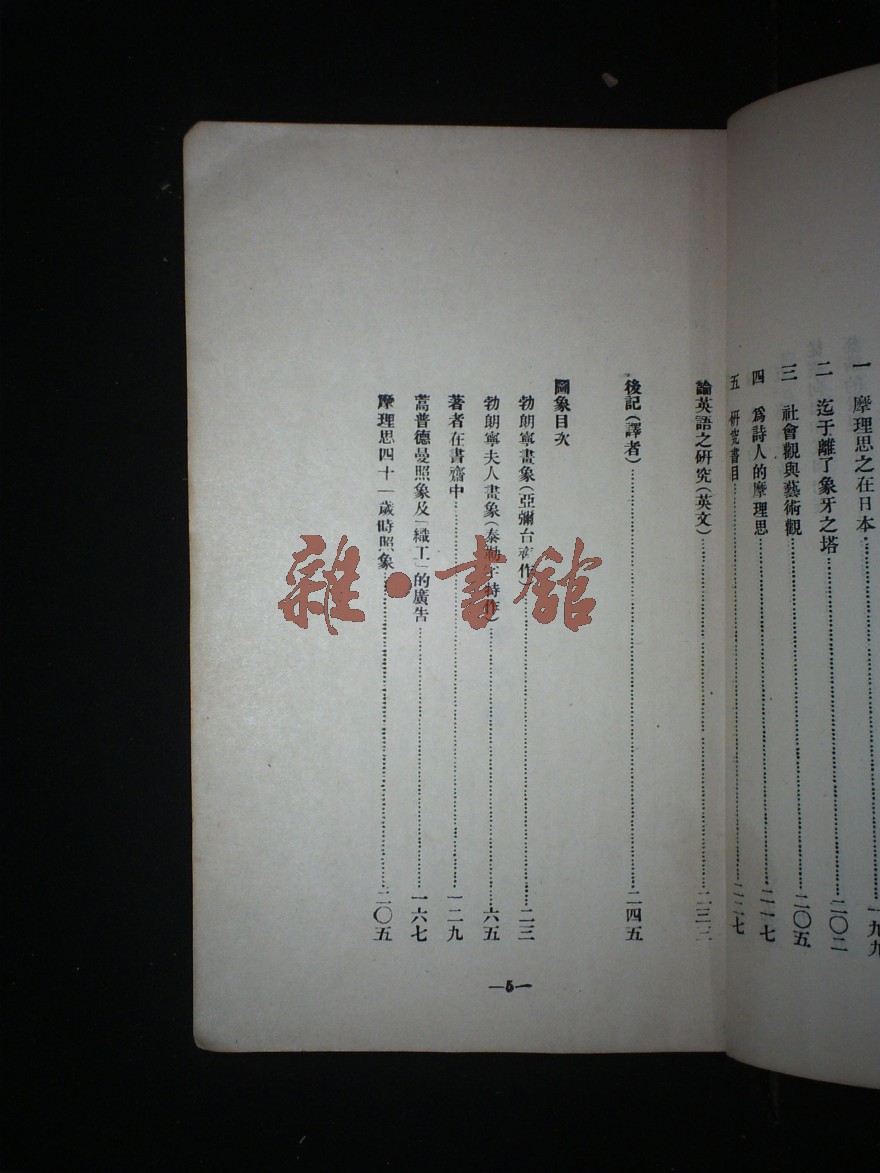 一　摩理思之在日本……一九九
二　迄于離了象牙之塔……二〇二
三　社會觀與藝術觀……二〇五
四　爲詩人的摩理思……二一七
五　研究書目……二二七
論英語之研究（英文）……二三三
後記（譯者）……二四五
圖象目次
勃朗寧畫象（亞彌台作）……二三
勃朗寧夫人畫象（泰勒字特作）……六五
著者在書齋中……一二九
蒿普德曼照象及「織工」的廣告……一六七
摩理思四十一歲時照象……二〇五
—5—
雜·書館